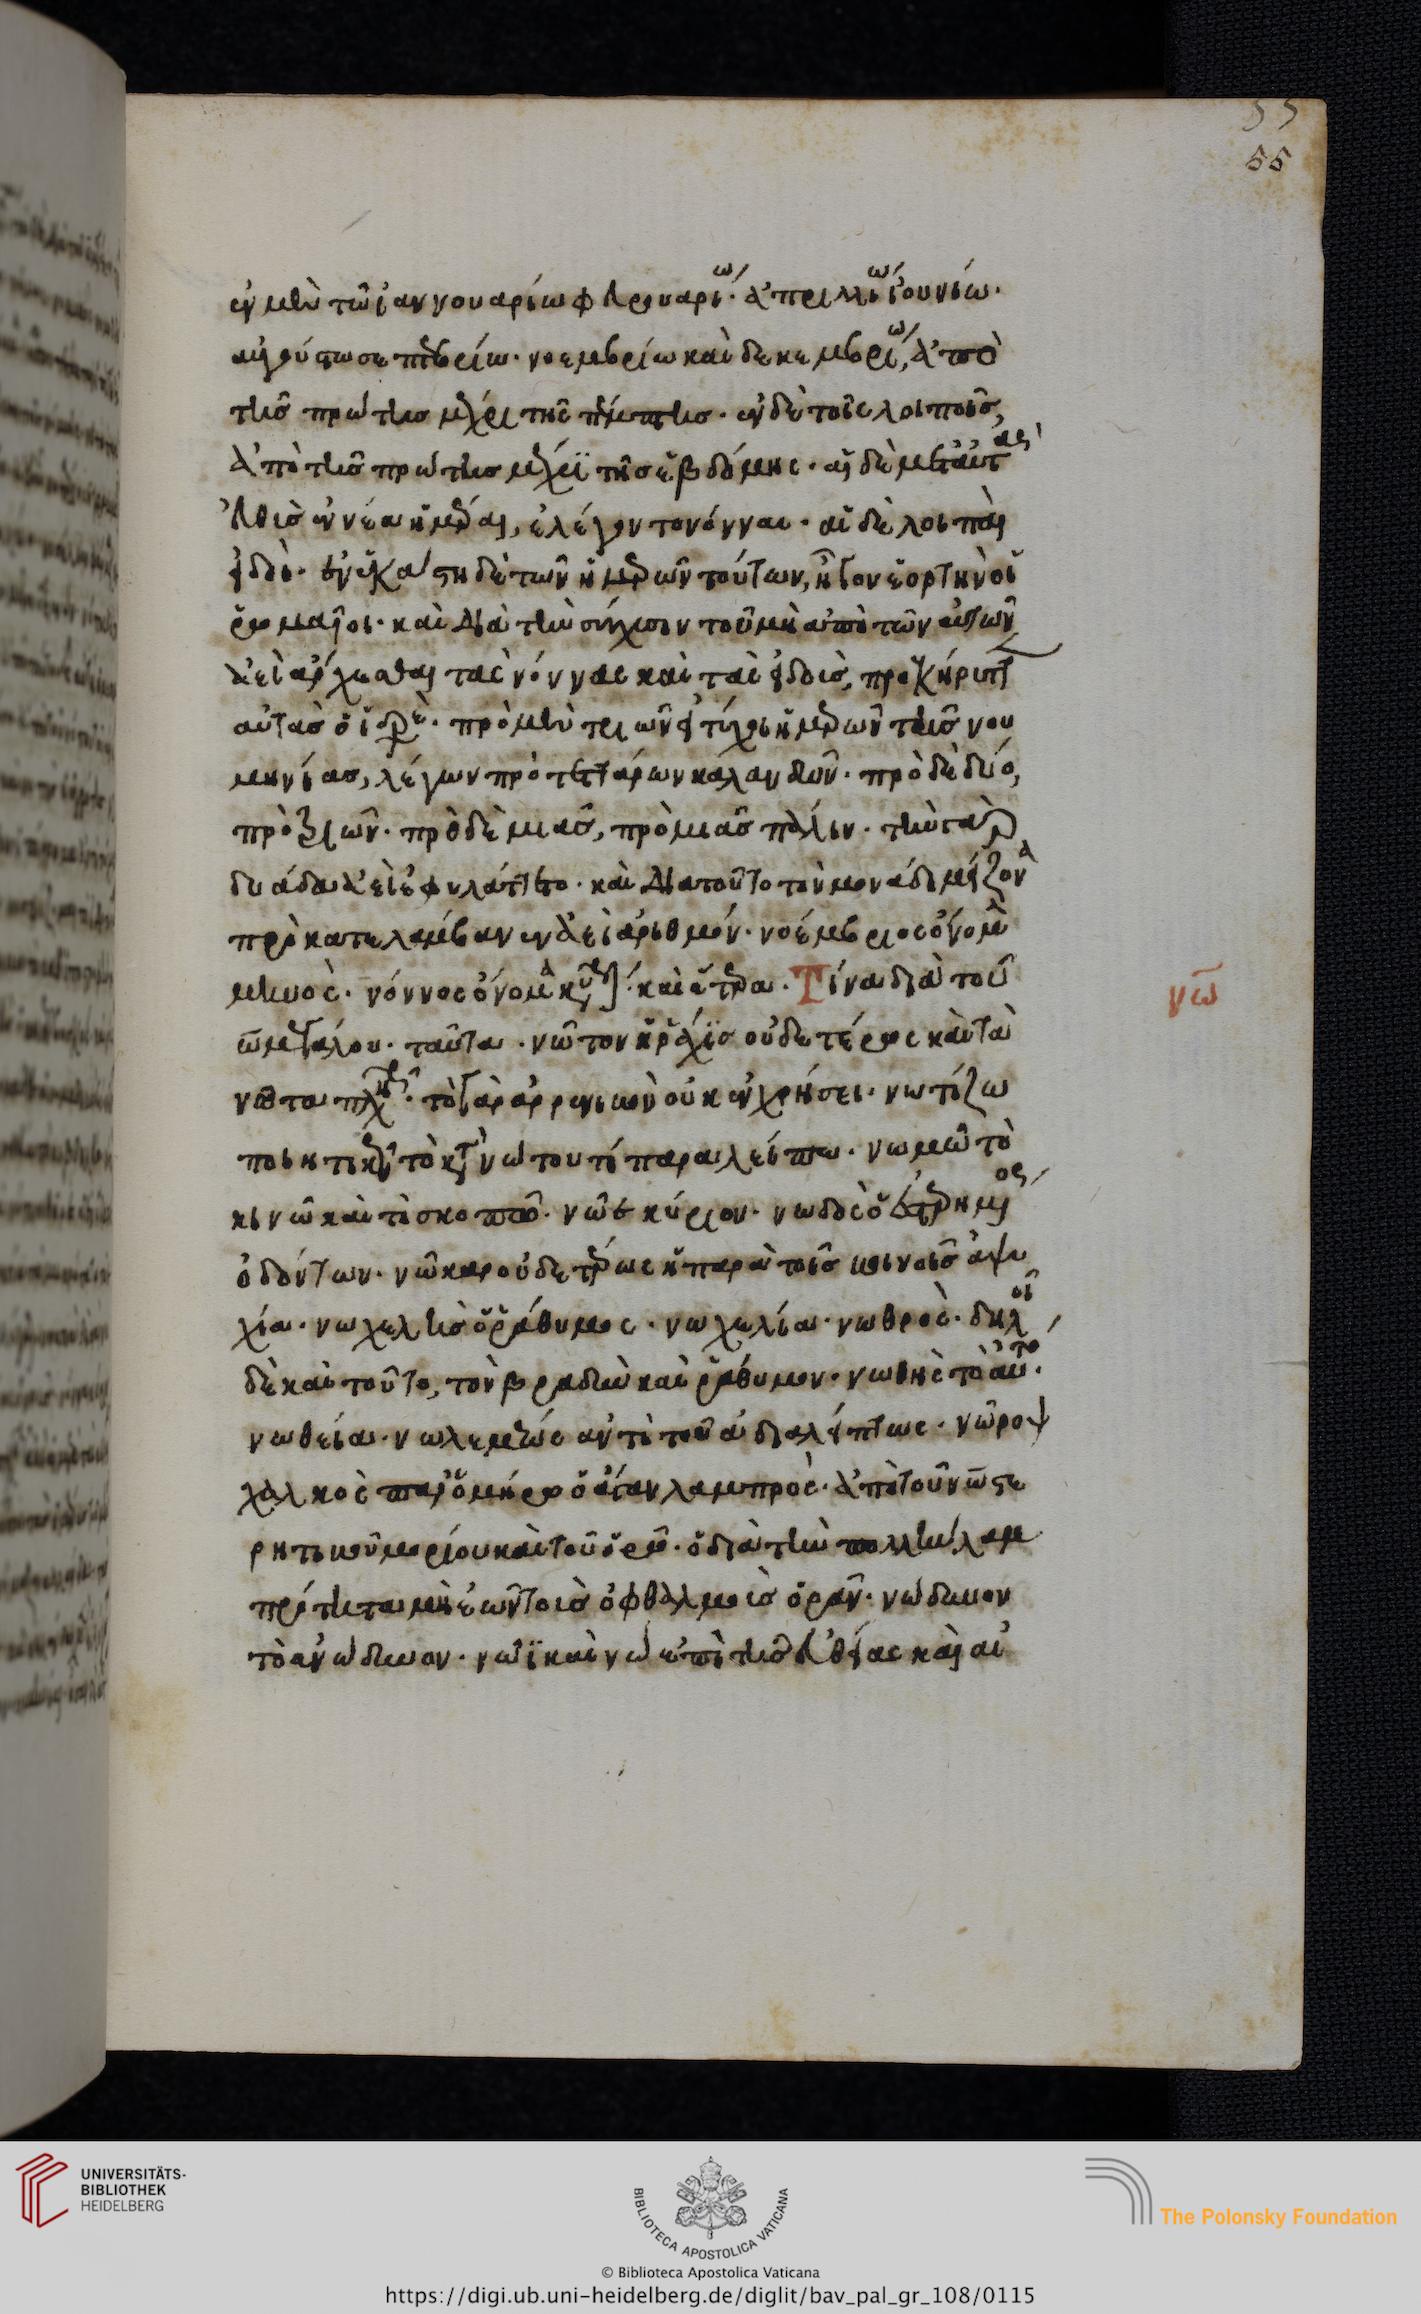 55
55
ἐν μὲν τῶ ἰαννουαρίω φευρουαρίω· ἀπριλλίω ἰουνίω·
αὐγούστω σεπτεβρίω· νοεμβρίω καὶ δεκεμβρίω, ἀπὸ
τῆς πρώτης μέχρι τῆς πέμπτης· ἐν δὲ τοῖς λοιποῖς,
ἀπὸ τῆς πρώτης μέχρι τῆς ἑβδόμης· αἱ δὲ μετ' αὐτὰς
εὐθὺς ἐννέα ἡμέραι, ἐλέγοντο νόνναι· αἱ δὲ λοιπαὶ
εἰδοί· ἐν ἑκάστη δὲ τῶν ἡμερῶν τούτων, ἦγον ἑορτὴν οἱ
ῥωμαῖοι· καὶ διὰ τὴν σύγχυσιν τοῦ μὴ ἀπὸ τῶν αὐτῶν
ἀεὶ ἄρχεσθαι τὰς νόννας καὶ τὰς εἰδοὺς, προεκήρυττεν
αὐτὰς ὁ ἱερεὺς· πρὸ μὲν τριῶν εἰ τύχοι ἡμερῶν τῆς νου
μηνίας, λέγων πρὸ τεττάρων καλανδῶν· πρὸ δὲ δύο,
πρὸ τριῶν· πρὸ δὲ μιᾶς, πρὸ μιᾶς πάλιν· τὴν γὰρ
δυάδα ἀεὶ ἐφυλάττετο· καὶ διὰ τοῦτο τὸν μονάδι μείζονα
προκατελάμβανεν ἀεὶ ἀριθμόν· νοέμβριος ὄνομα
μηνός· νόννος ὄνομα κύριον· καὶ ἕτερα· Τίνα διὰ τοῦ
ω μεγάλου· ταῦτα· νῶτον ἡ ῥάχις οὐδετέρως καὶ τὰ
νῶτα πληθυντικῶς· τὸ γὰρ ἀρρενικὸν οὐκ ἐν χρήσει· νωτίζω
ποιητικὸν τὸ κατὰ νώτου τί παραλείπω· νωμῶ τὸ
κινῶ καὶ τὸ σκοπῶ· νῶε κύριον· νωδὸς ὁ ἐστερημένος
ὀδόντων· νῶκαρ οὐδετέρως ἡ παρὰ τοῖς κοινοῖς ἀψυ
χία· νωχελὴς ὁ ῥάθυμος· νωχελία· νωθρὸς· δηλοῖ
δὲ καὶ τοῦτο, τὸν βραδὺν καὶ ῥάθυμον· νωθὴς τὸ αὐτό·
νωθεία· νωλεμέως ἀντὶ τοῦ ἀδιαλείπτως· νῶροψ
χαλκὸς παρ' ὁμήρω ὁ ἄγαν λαμπρὸς· ἀπὸ τοῦ νω στε
ρητικοῦ μορίου καὶ τοῦ ὁρῶ· ὃ διὰ τὴν πολλὴν λαμ
πρότητα μὴ ἐῶν τοῖς ὀφθαλμοῖς ὁρᾶν· νώδυνον
τὸ ἀνώδυνον· νῶϊ καὶ νώ ἐπὶ τῆς εὐθείας καὶ αἰ
νω
UNIVERSITÄTS-
BIBLIOTHEK
HEIDELBERG
BIBLIOTECA APOSTOLICA VATICANA
The Polonsky Foundation
© Biblioteca Apostolica Vaticana
https://digi.ub.uni-heidelberg.de/diglit/bav_pal_gr_108/0115